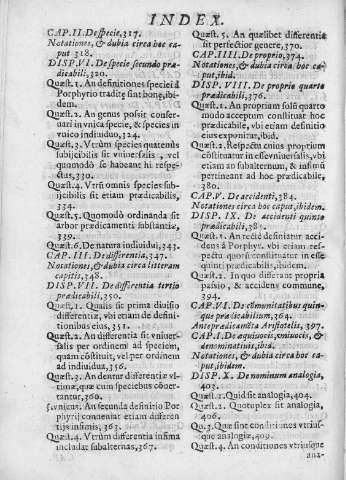 INDEX.
CAP. II. De specie, 317.
Notationes, & dubia circa hoc ca-
put 318.
DISP. VI. De specie secundo præ-
dicabili, 320.
Quæst. 1. An definitiones speciei à
Porphyrio traditæ sint bonæ, ibi-
dem.
Quæst. 2. An genus possit conser-
uari in vnica specie, & species in
vnico indiuiduo, 324.
Quæst. 3. Vtrùm species quatenùs
subijcibilis sit vniuersalis, vel
quomodo se habeant hi respe-
ctus, 330.
Quæst. 4. Vtrũ omnis species sub-
ijcibilis sit etiam prædicabilis,
334.
Quæst. 5. Quomodò ordinanda sit
arbor prædicamenti substantiæ,
339.
Quæst. 6. De natura indiuidui, 343.
CAP. III. De differentia, 347.
Notationes, & dubia circa litteram
capitis, 348.
DISP. VII. De differentia tertio
prædicabili, 350.
Quæst. 1. Qualis sit prima diuisio
differentiæ, vbi etiam de defini-
tionibus eius, 351.
Quæst. 2. An differentia sit vniuer-
salis per ordinem ad speciem,
quam cõstituit, vel per ordinem
ad indiuidua, 356.
Quæst. 3. An dentur differentiæ vl-
timæ, quæ cum speciebus cõuer-
tantur, 360.
An secunda definitio Por-
phyrij conueniat etiam differen-
tijs infimis, 363.
Quæst. 4. Vtrùm differentia infima
includat subalternas, 367.
Quæst. 5. An quælibet differentia
sit perfectior genere, 370.
CAP. IIII. De proprio, 374.
Notationes, & dubia circa hoc ca-
put, ibid.
DISP. VIII. De proprio quarto
prædicabili, 376.
Quæst. 1. An proprium solũ quarto
modo acceptum constituat hoc
prædicabile, vbi etiam definitio
eius exponitur, ibid.
Quæst. 2. Respectu cuius proprium
cõstituatur in esse vniuersalis, vbi
etiam an subalternum, & infimũ
pertineant ad hoc prædicabile,
380.
CAP. V. De accidenti, 384.
Notationes circa hoc caput, ibidem.
DISP. IX. De accidenti quinto
prædicabili, 385.
Quæst. 1. An rectè definiatur acci-
dens à Porphyr. vbi etiam res-
pectu quorũ constituatur in esse
quinti prædicabilis, ibidem.
Quæst. 2. In quo differant propria
passio, & accidens commune,
394.
CAP. VI. De cõmunitatibus quin-
que prædicabilium, 364.
Antepredicamẽta Aristotelis, 397.
CAP. I. De æquiuocis, vniuocis, &
denominatiuis, ibid.
Notationes, & dubia circa hoc ca-
put, ibidem.
DISP. X. De nominum analogia,
403.
Quæst. 1. Quid sit analogia, 404.
Quæst. 2. Quotuplex sit analogia,
406.
Qu. 3. Quæ sint conditiones vtrius-
que analogiæ, 409.
Quæst. 4. An conditiones vtriusque
ana-